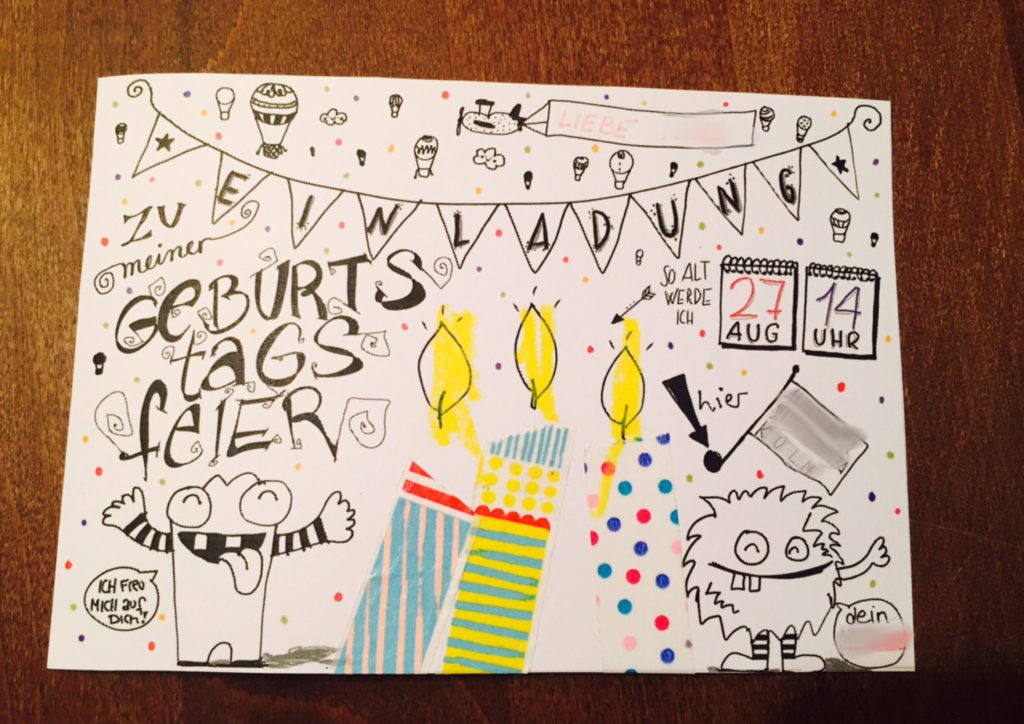 LIEBE
EINLADUNG
ZU
meiner
GEBURTS
tAGS
feIER
SO ALT
WERDE
ICH
27
AUG
14
UHR
hier
KÖLN
ICH FREU
MICH auf
DICH!
dein